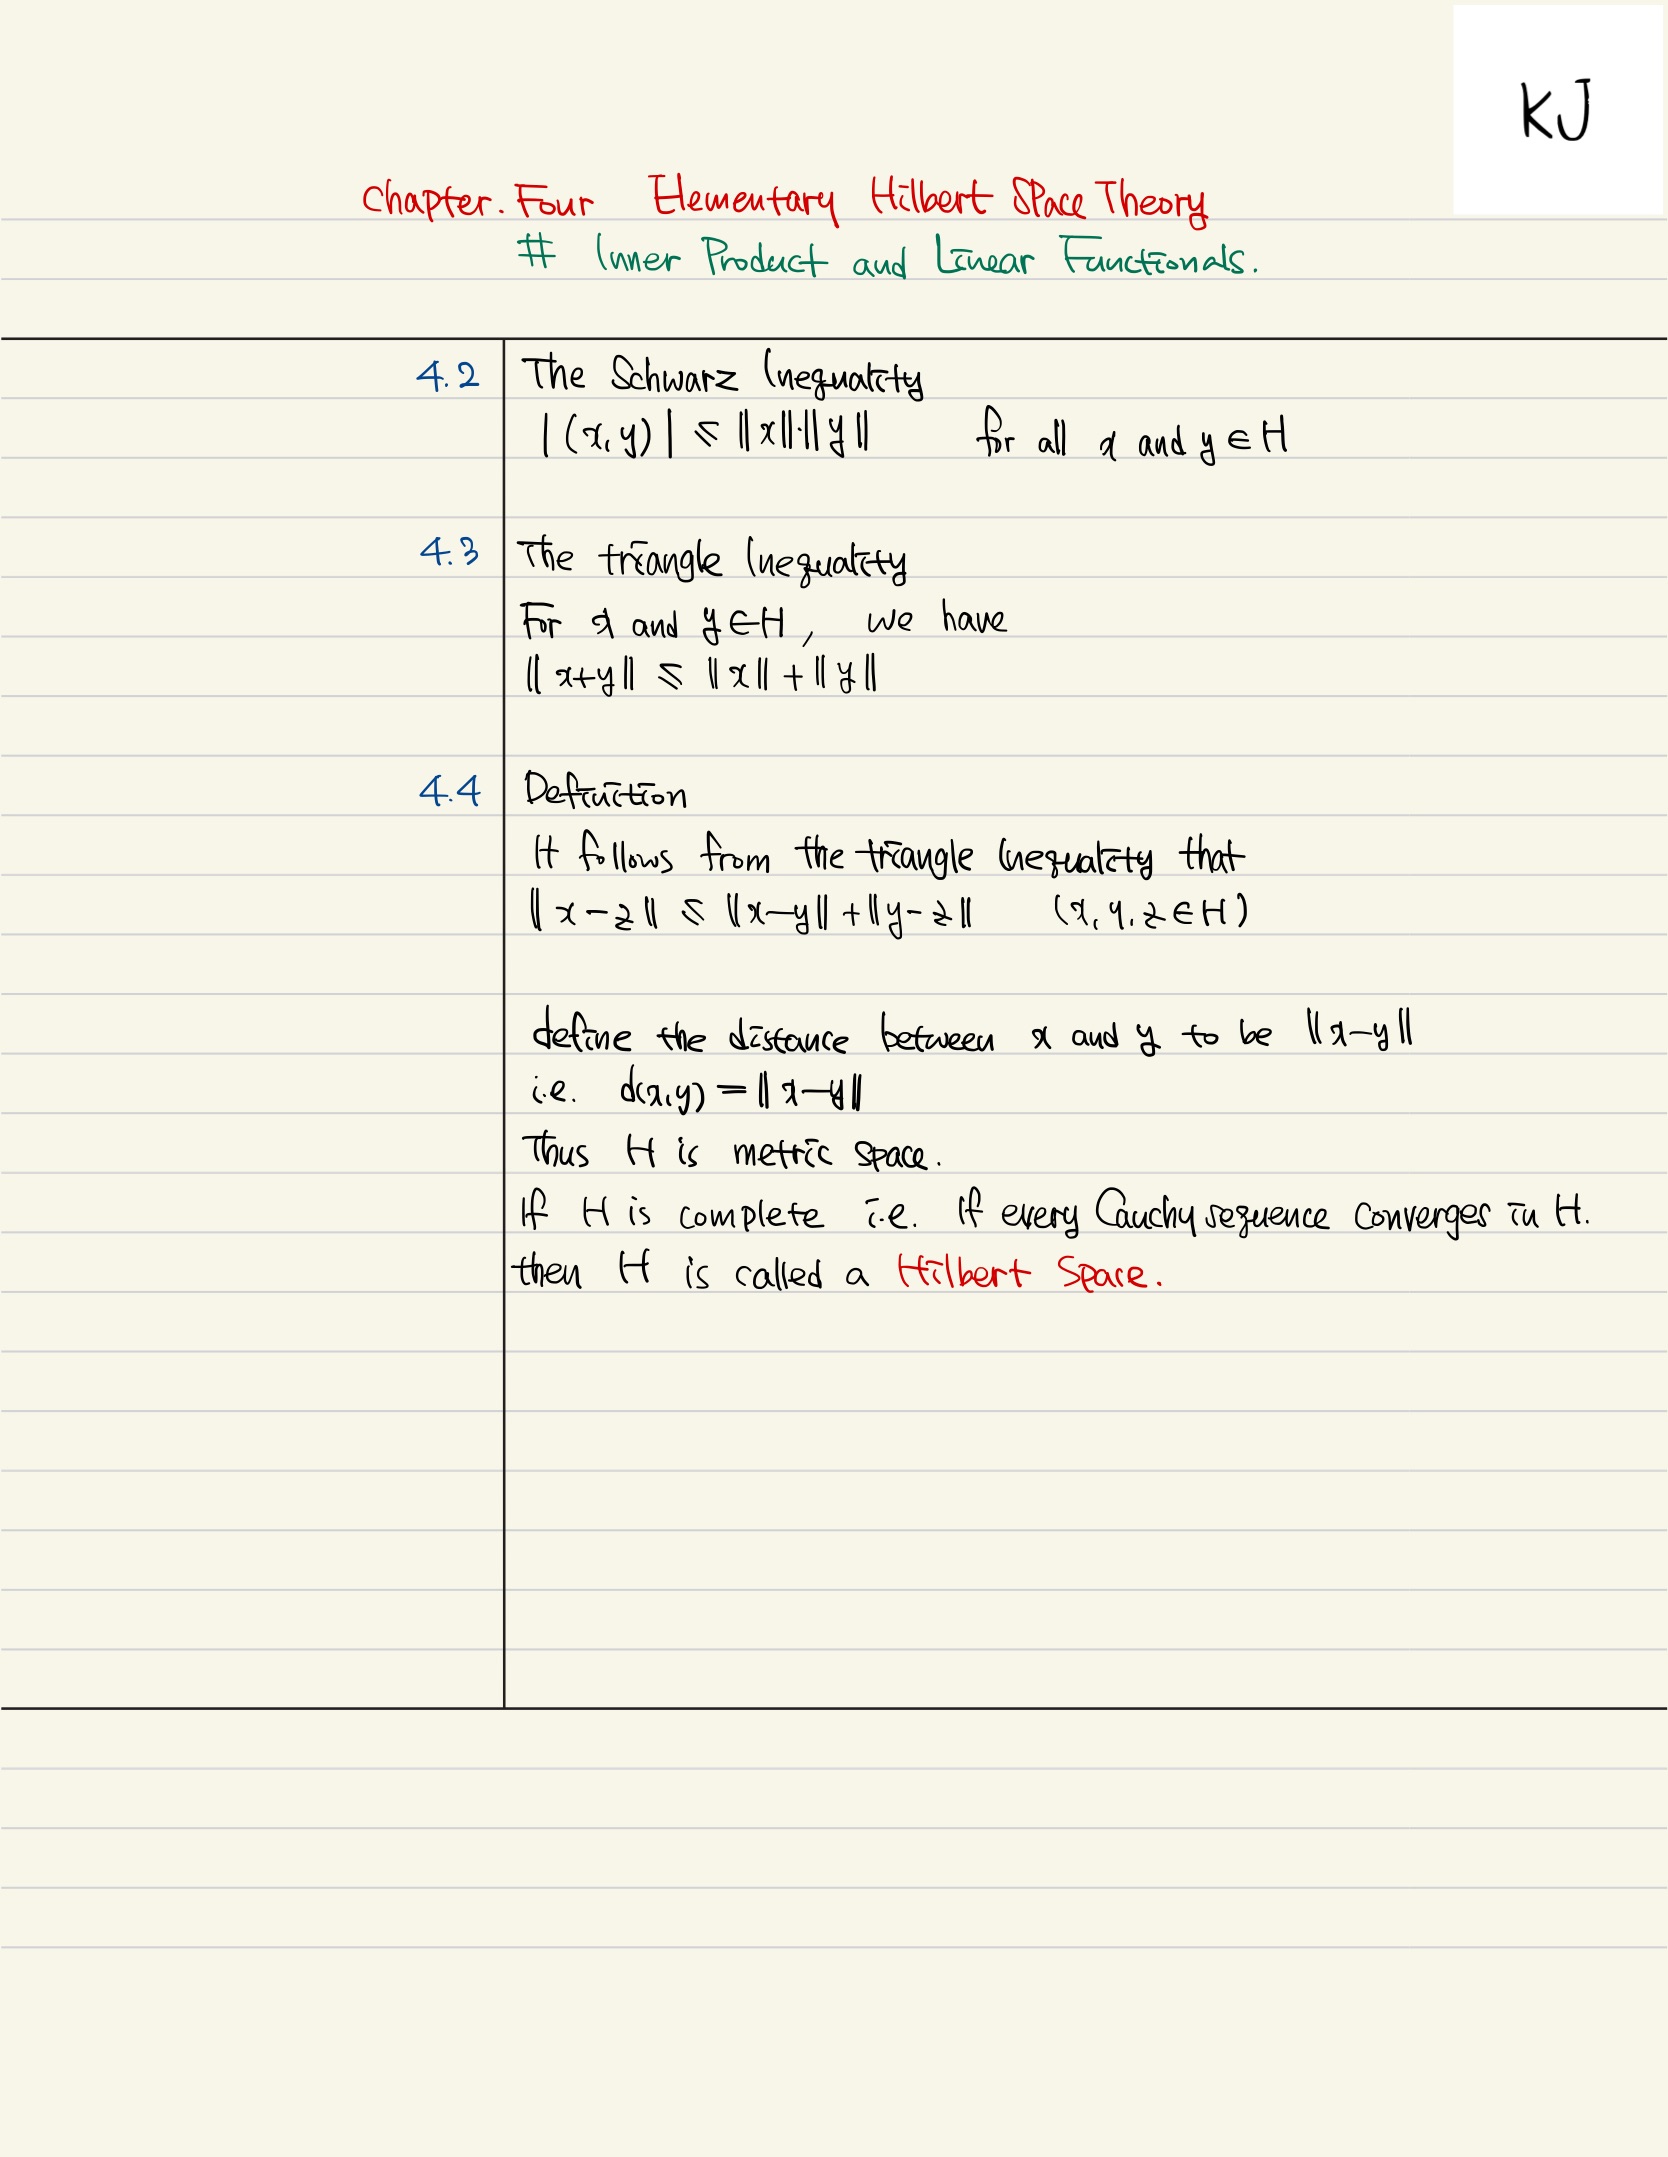 KJ
Chapter. Four Elementary Hilbert Space Theory
# Inner Product and Linear Functionals.
4.2 The Schwarz Inequality
|(x,y)| ≤ ‖x‖·‖y‖ for all x and y ∈ H
4.3 The triangle Inequality
For x and y ∈ H, we have
‖x+y‖ ≤ ‖x‖ + ‖y‖
4.4 Definition
It follows from the triangle Inequality that
‖x-z‖ ≤ ‖x-y‖ + ‖y-z‖ (x,y,z ∈ H)
define the distance between x and y to be ‖x-y‖
i.e. d(x,y) = ‖x-y‖
Thus H is metric space.
If H is complete i.e. If every Cauchy sequence converges in H.
then H is called a Hilbert Space.